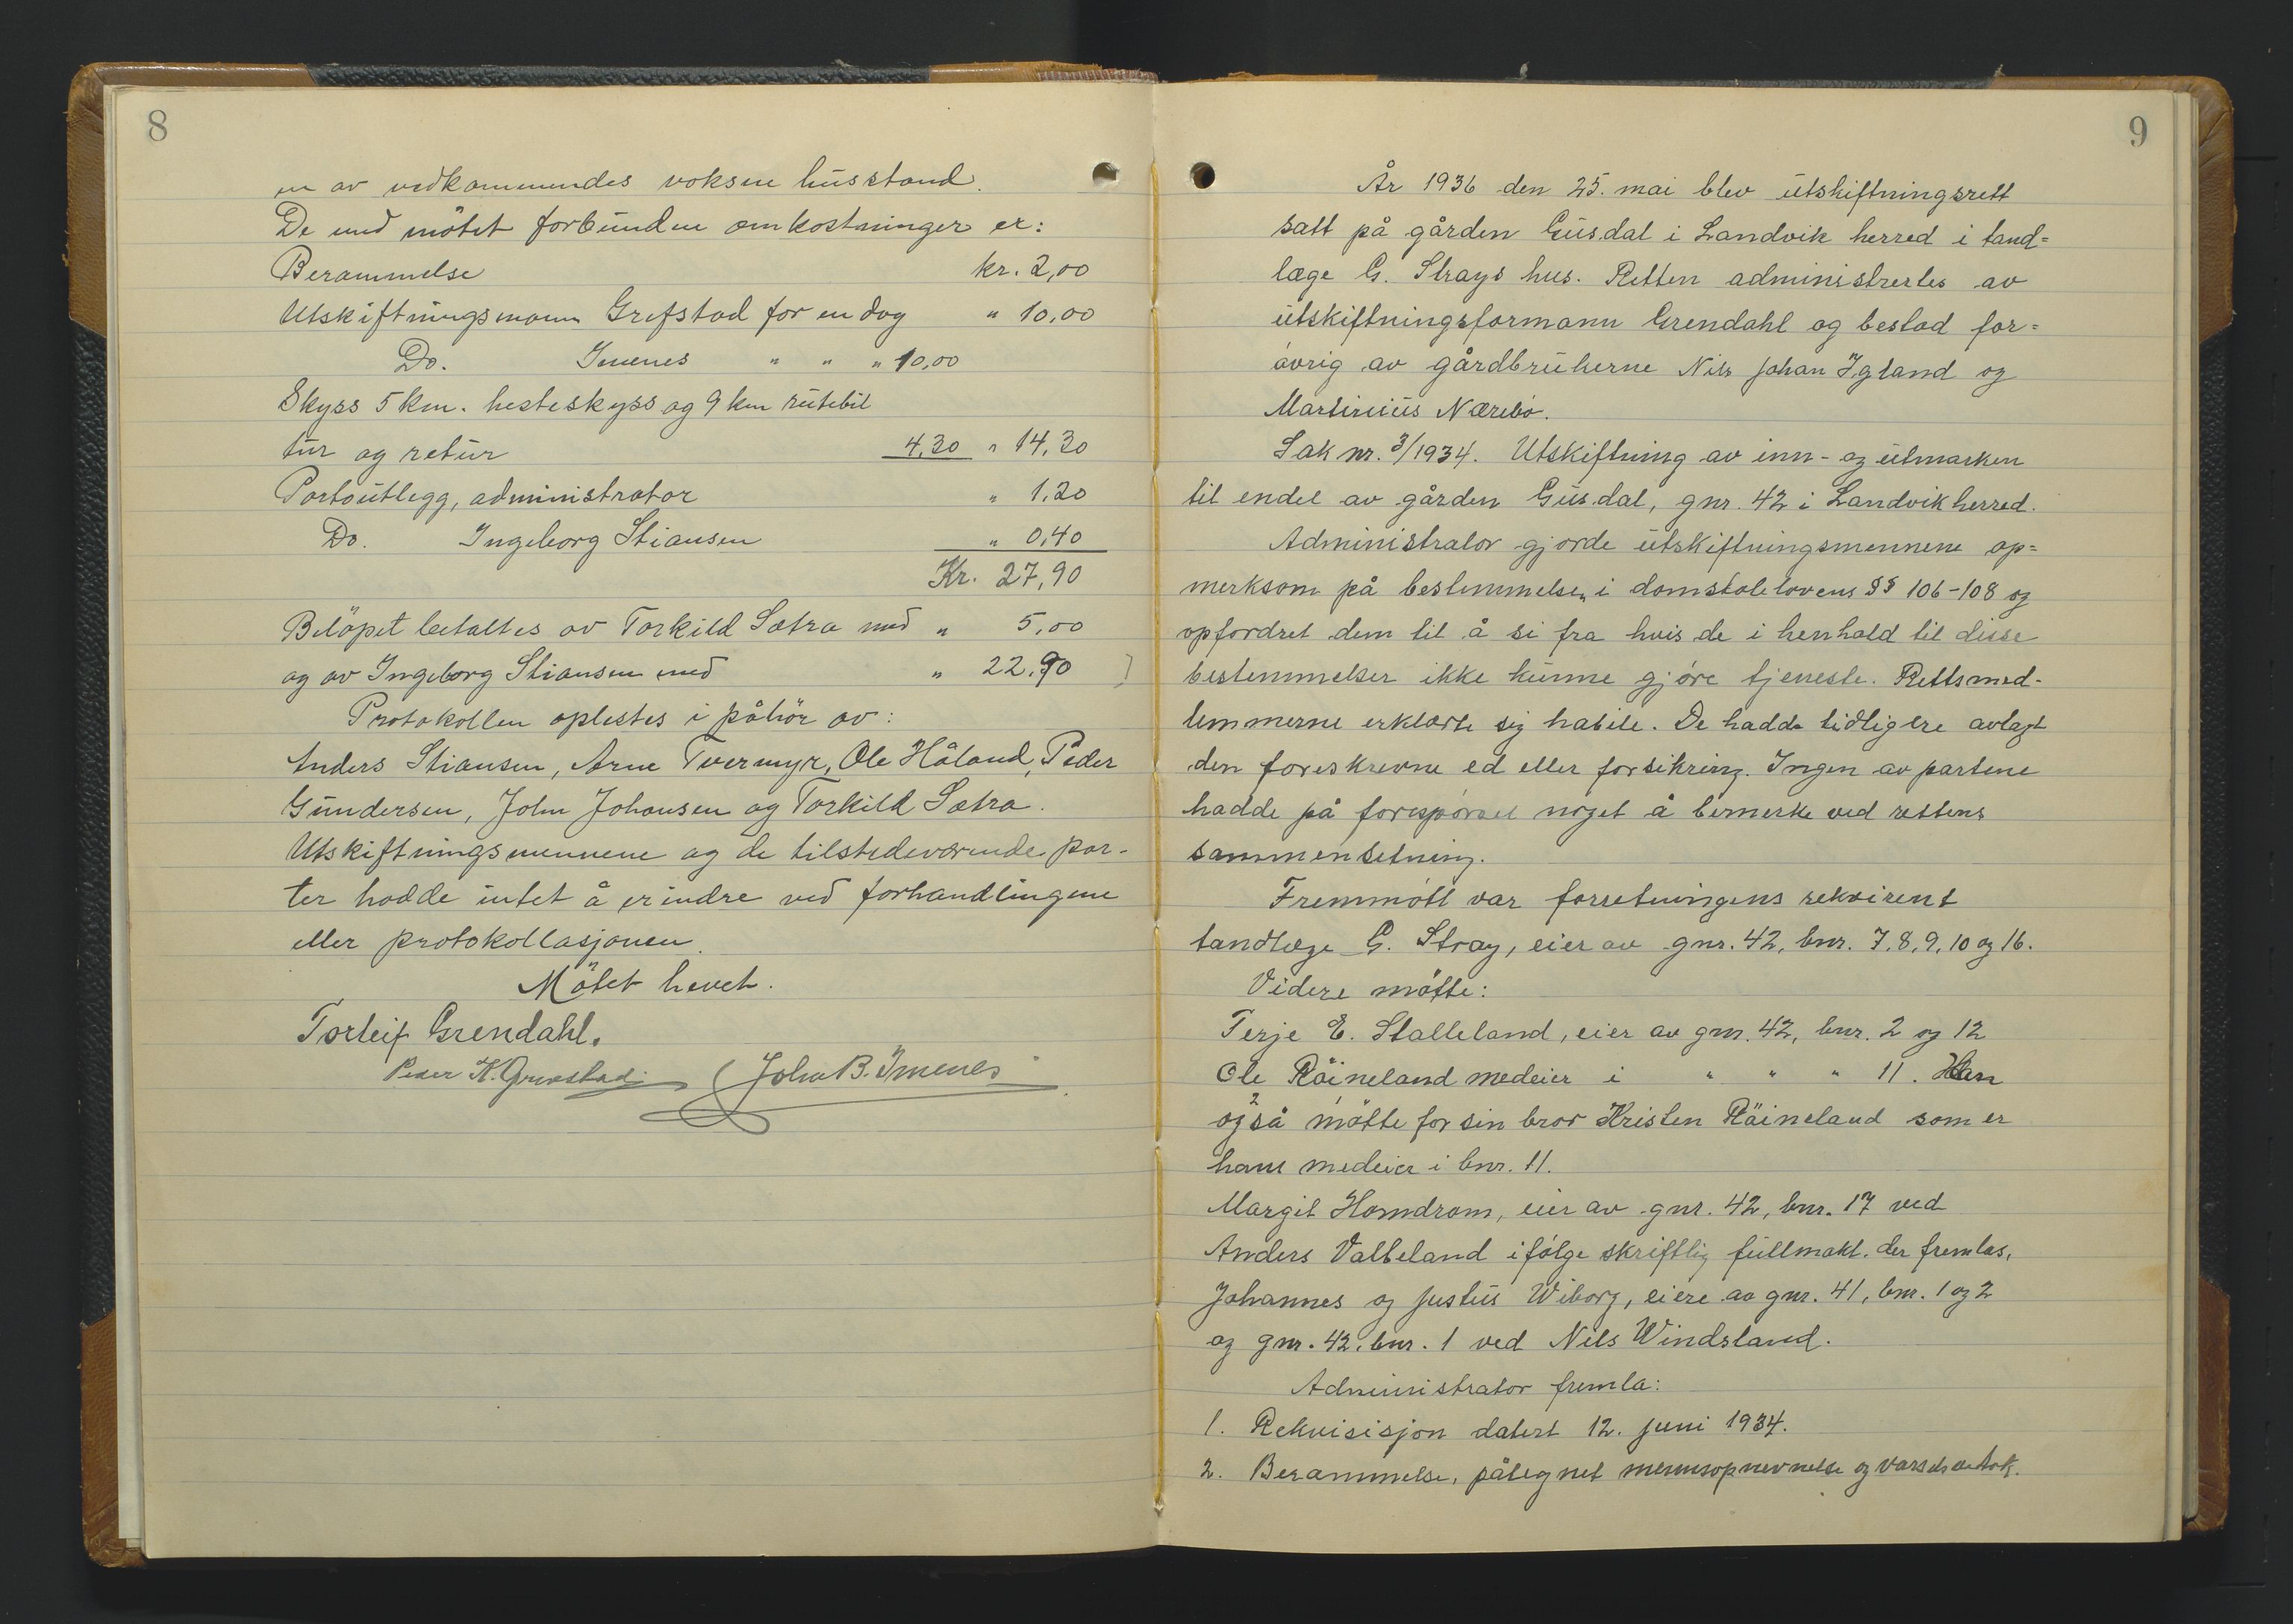 8
en av vedkommendes voksne husstand.
De med mötet forbundne omkostninger er:
Berammelse kr. 2,00
Utskiftningsmann Grefstad for en dag " 10,00
Do. Imenes " " " 10,00
Skyss 5 km. hesteskyss og 9 km rutebil
tur og retur 4,30 " 14,30
Portoutlegg, administrator " 1,20
Do. Ingeborg Stiansen " 0,40
Kr. 27,90
Belöpet betaltes av Torkild Sætra med " 5,00
og av Ingeborg Stiansen med " 22,90
Protokollen oplestes i påhör av:
Anders Stiansen, Arne Tvermyr, Ole Håland, Peder
Gundersen, John Johansen og Torkild Sætra.
Utskiftningsmennene og de tilstedeværende par-
ter hadde intet å erindre ved forhandlingene
eller protokollasjonen.
Mötet hevet.
Torleif Grendahl.
Peder K. Grefstad. John B. Imenes
9
År 1936 den 25. mai blev utskiftningsrett
satt på gården Gusdal i Landvik herred i tand=
læge G. Strays hus. Retten administrertes av
utskiftningsformann Grendahl og bestod for=
øvrig av gårdbrukerne Nils Johan Igland og
Martinius Nærebø.
Sak nr. 3/1934. Utskiftning av inn- og utmarken
til endel av gården Gusdal, gnr. 42 i Landvik herred.
Administrator gjorde utskiftningsmennene op=
merksom på bestemmelsen i domstolelovens §§ 106-108 og
opfordret dem til å si fra hvis de i henhold til disse
bestemmelser ikke kunne gjøre tjeneste. Rettsmed-
lemmerne erklærte sig habile. De hadde tidligere avlagt
den foreskrevne ed eller forsikring. Ingen av partene
hadde på forespørsel noget å bemerke ved rettens
sammensetning.
Fremmøtt var forretningens rekvirent
tandlæge G. Stray, eier av gnr. 42, bnr. 7, 8, 9, 10 og 16.
Videre møtte:
Terje E. Stalleland, eier av gnr. 42, bnr. 2 og 12
Ole Röineland medeier i " " " 11. Han
også møtte for sin bror Kristen Röineland som er
hans medeier i bnr. 11.
Margit Homdrom, eier av gnr. 42, bnr. 17 ved
Anders Valbeland ifølge skriftlig fullmakt. der fremlas,
Johannes og Justus Wiborg, eiere av gnr. 41, bnr. 1 og 2
og gnr. 42, bnr. 1 ved Nils Windsland.
Administrator fremla:
1. Rekvisisjon datert 12. juni 1934.
2. Berammelse, påtegnet mennsopnevnelse og